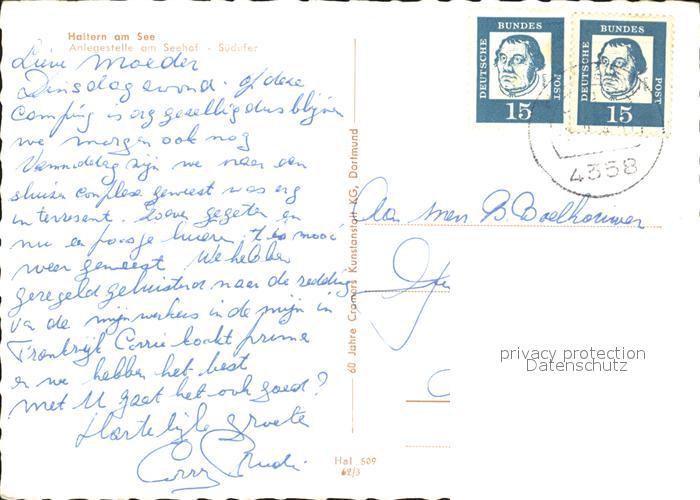 Haltern am See
Anlegestelle am Seehof - Südufer
Lieve Moeder
Dinsdag avond. op deze
Camping is erg gezellig dus blijven
we morgen ook nog
Vanmiddag zijn we naar een
sluizen complex geweest was erg
interresant. zoeven gegeten en
nu en poosje luieren, t is mooi
weer geweest We hebben
geregeld geluisterd naar de redding
van de mijnwerkers in de mijn in
Frankrijk Corrie kookt prima
en we hebben het best
met U gaat het ook goed?
Hartelijke groeten
Corry Rudi
60 Jahre Cramers Kunstanstalt KG, Dortmund
Hal 509
62/3
DEUTSCHE BUNDES POST
15
DEUTSCHE BUNDES POST
15
4358
Aan Mevr B Boelhouwer
privacy protection
Datenschutz